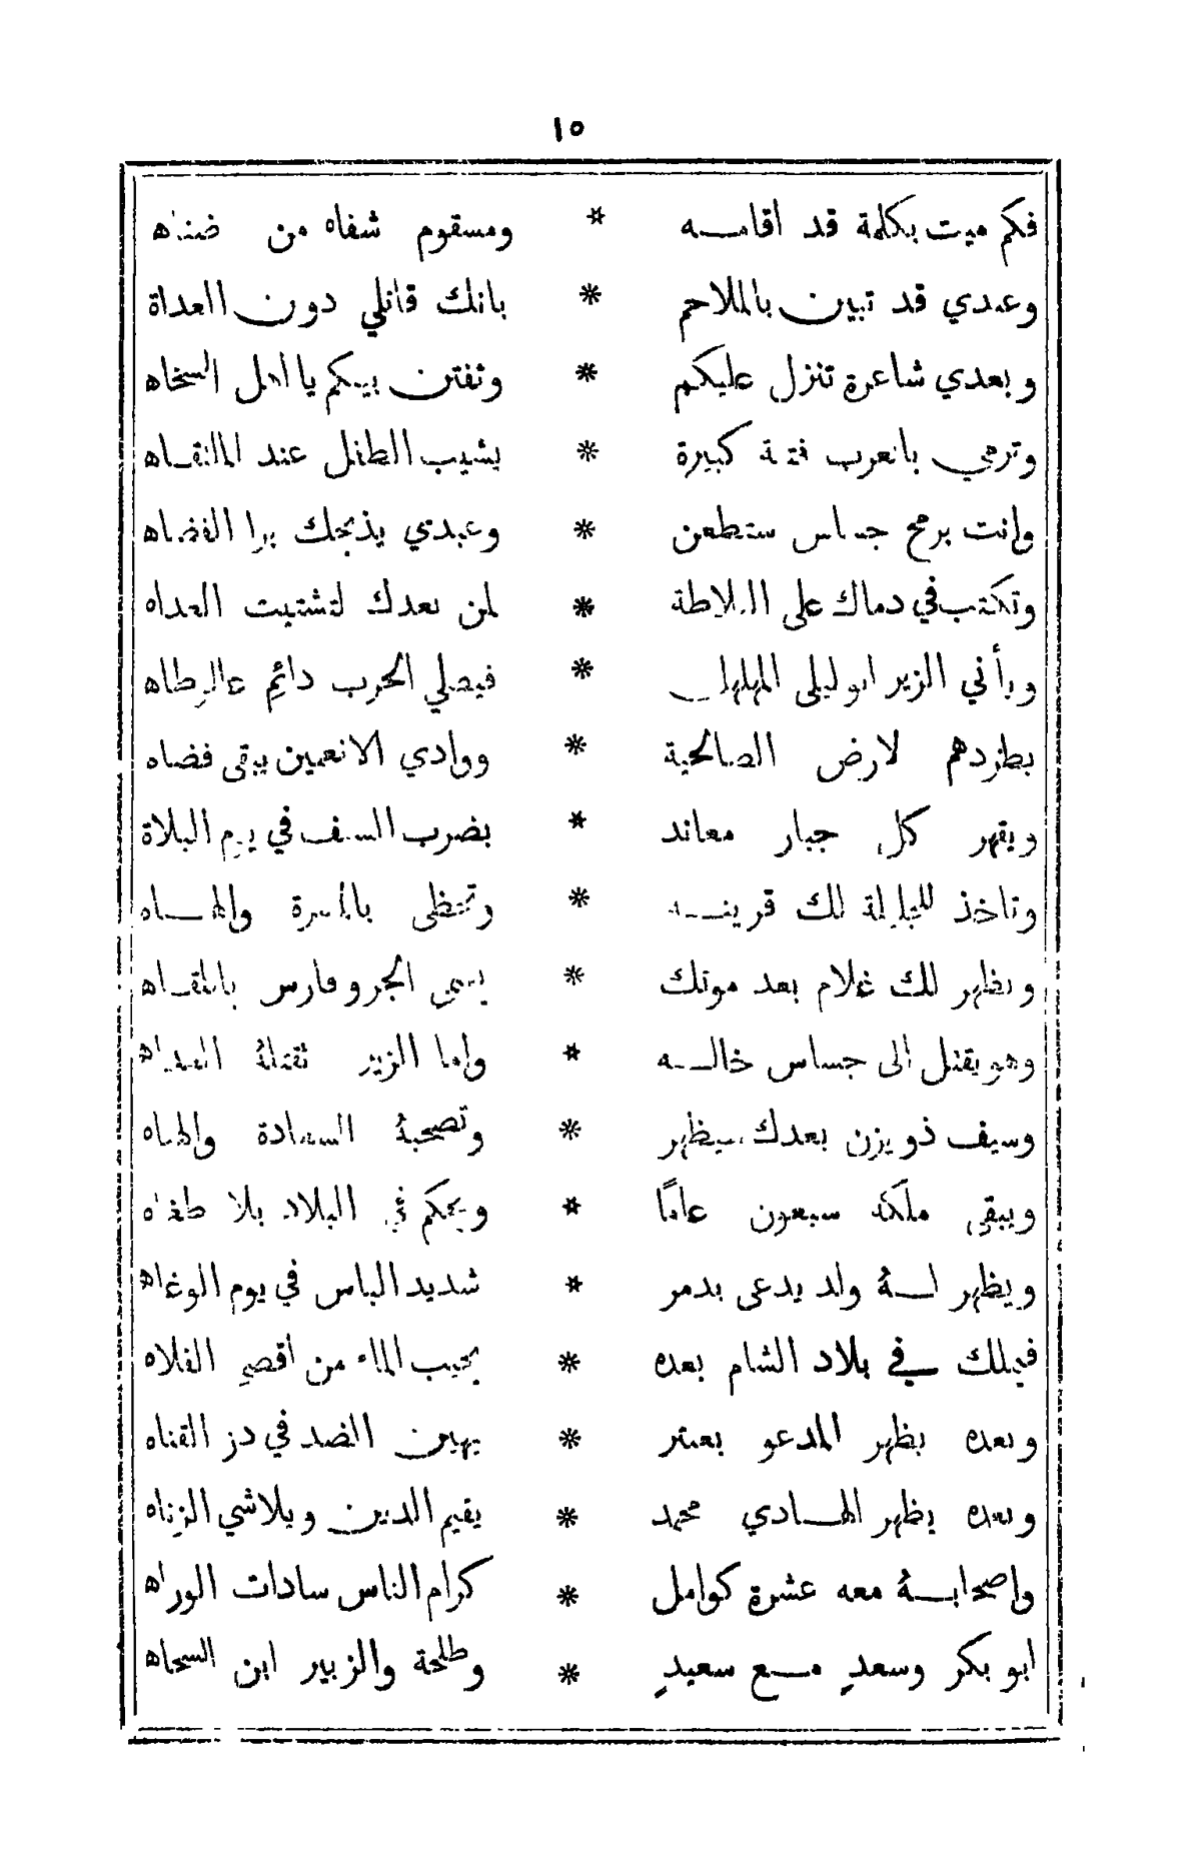 ١٥
فكم ميت بكلمة قد اقامـه * ومسقوم شفاه من ضناه
وعندي قد تبين بالملاحم * بانك قاتلي دون العداة
وبعدي شاعرة تنزل عليكم * وتفتن بينكم يا اهل السخاه
وترمي بالعرب فتنة كبيرة * يشيب الطفل عند الملتقاه
وانت برمح جساس ستطعن * وعبدي يذبحك برا الفضاه
وتكتب في دماك على البلاطة * لمن بعدك لتشتيت العداه
ويأتي الزير ابو ليلى المهلهل * فيصلي الحرب دائم
يطردهم لارض الصالحية * ووادي الانعمين يبقى فضاه
ويقهر كل جبار معاند * بضرب السيف في يوم البلاة
وتاخذ للجليلة لك قرينـه * وتحظى بالمسرة والهنـاه
ويظهر لك غلام بعد موتك * يسمى الجرو فارس بالملتقـاه
وهو يقتل الى جساس خالـه * واما الزير تقتلهُ العداه
وسيف ذو يزن بعدك سيظهر * وتصحبهُ السعادة والهناه
ويبقى ملكهُ سبعون عامًا * ويحكم في البلاد بلا طغاه
ويظهر لـهُ ولد يدعى بدمر * شديد الباس في يوم الوغاه
فيملك في بلاد الشام بعده * يجيب الماء من اقصى الفلاه
وبعده يظهر المدعو بعنتر * يهين الضد في دز القناه
وبعده يظهر الهـادي محمد * يقيم الدين ويلاشي الزناه
واصحابـهُ معه عشرة كوامل * كرام الناس سادات الوراه
ابو بكر وسعدٍ مـع سعيدٍ * وطلحة والزبير ابن السخاه